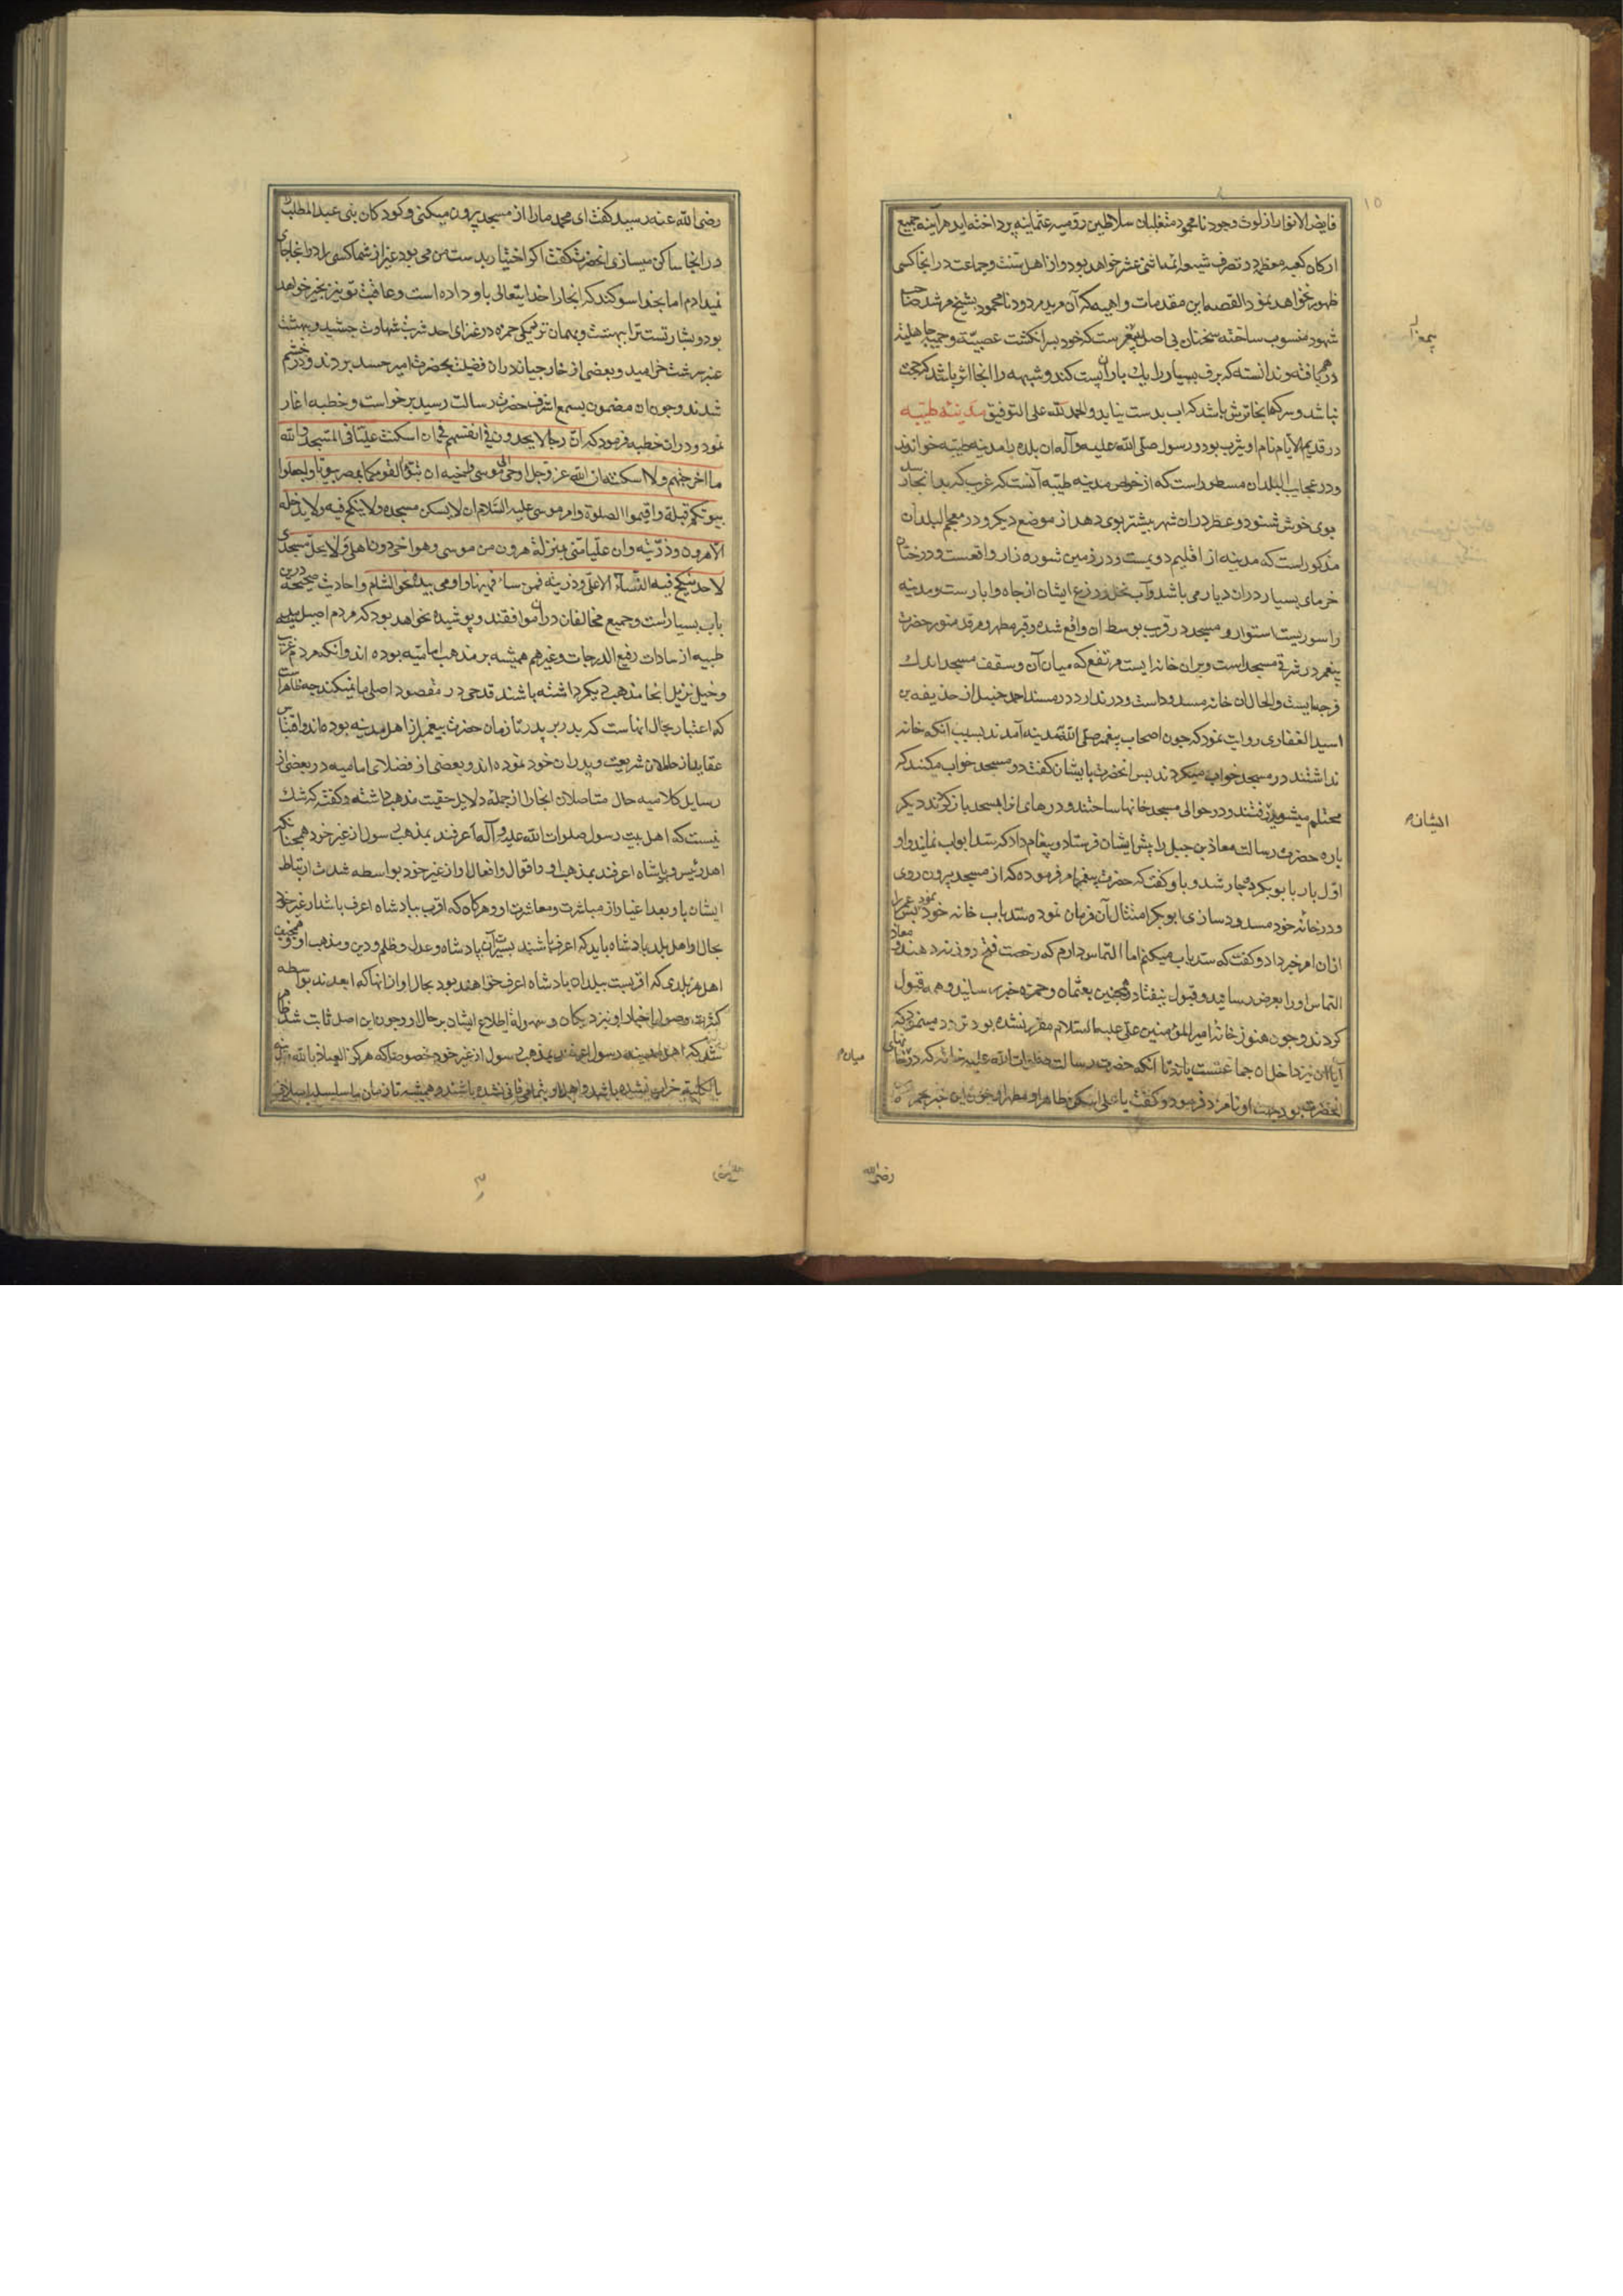 فایض الانوار از لوث وجود نامحمود متغلبان سلاطین رومیه عثمانیه پرداخته اید هر آینه جمیع
ارکان کعبه معظم در تصرف شیعه ائمه اثنی عشر خواهد بود و از اهل سنت و جماعت در انجا کسی
ظهور نخواهد نمود القصه این مقدمات واهیه که آن مرید مردود نامحمود بشیخ مرشد صاحب
شهود منسوب ساخته سخنان بی اصل پیغمبرست که خود بسر انکشت عصبیت و حمیت جاهلیة
درهم بافته و ندانسته که برف بسیار را یک باران پست کند و شبهه را انجا اثر باشد که حجت
نباشد و سرکها بجا ترش باشد که اب بدست نیاید و الحمد لله علی التوفیق مدینه طیبه
در قدیم الایام نام او یثرب بود و رسول صلی الله علیه و آله ان بلده را مدینه طیبه خواندند
و در عجایب البلدان مسطور است که از خواص مدینه طیبه آنست که غریب که بدانجا رسد
بوی خوش شنود و عطر در ان شهر بیشتر بوی دهد از موضع دیکر و در معجم البلدان
مذکور است که مدینه از اقلیم دویمست و در زمین شوره زار واقعست و درختان
خرمای بسیار در ان دیار می باشد و آب نخل و زرع ایشان از چاه و ابار ست و مدینه
را سوریست استوار و مسجد در قرب بوسط ان واقع شده و قبر مطهر و مرقد منور حضرت
پیغمبر در شرقی مسجد است و بران خانه ایست مرتفع که میان آن و سقف مسجد اندک
فرجه ایست و الحال ان خانه مسدود است و در ندارد و در مسند احمد حنبل از حذیفه بن
اسید الغفاری روایت نمود که چون اصحاب پیغمبر صلی الله بمدینه آمدند بسبب آنکه خانه
نداشتند در مسجد خواب میکردند پس انحضرت بایشان کفت در مسجد خواب مکنند که
محتلم میشوید رفتند و در حوالی مسجد خانها ساختند و درهای انرا بمسجد باز کردند دیکر
باره حضرت رسالت معاذ بن جبل را پیش ایشان فرستاد و پیغام داد که سد ابواب نمایند و او
اول بار بابو بکر دچار شد و باو کفت که حضرت پیغمبر امر فرموده که از مسجد بیرون روی
و در خانه خود مسدود سازی ابو بکر امتثال آن فرمان نمود و سد باب خانه خود نمود پس عمر را
ازان امر خبر داد و کفت که سد باب میکنم اما التماس دارم که رخصت فتح روزنه دهند و معاذ
التماس او را بعرض رسانید و قبول نیفتاد و همچنین بعثمان و حمزه خبر رسانید و همه قبول
کردند و چون هنوز خانه امیر المؤمنین علی علیه السلام مقرر نشده بود تردد مینمود که
آیا ان نیز داخل ان جماعتست یا نه تا انکه حضرت رسالت صلوات الله علیه خانه که در
انحضرت بود بجهت او نامزد فرمود و کفت یا علی اسکن طاهرا و مطهرا و چون این خبر بحمزه
ایشان
میان
رضی الله
رضی الله عنه رسید کفت ای محمد ما را از مسجد بیرون میکنی و کودکان بنی عبد المطلب را
در انجا ساکن میسازی انحضرت کفت اکر اختیار بدست من می بود غیر از شما کسی را در انجا جای
نمیدادم اما بخدا سوکند که انجا را خدایتعالی باو داده است و عاقبت تو نیز بخیر خواهد
بود و بشارتست ترا ببهشت و بهمان نزدیکی حمزه در غزای احد شربت شهادت چشید و ببهشت
عنبر سرشت خرامید و بعضی از خارجیانه دران فضیلت بحضرت امیر حسد بردند و در خشم
شدند و چون ان مضمون بسمع اشرف حضرت رسالت رسید برخواست و خطبه اغاز
نمود و در ان خطبه فرمود که ان رجالا یجدون فی انفسهم فی ان اسکنت علیا فی المسجد والله
ما اخرجتهم ولا اسکنته ان الله عز وجل اوحی الی موسی واخیه ان تبوا لقومکما بمصر بیوتا واجعلوا
بیوتکم قبلة واقیموا الصلوة وامر موسی علیه السلام ان لا یسکن مسجده ولا ینکح فیه ولا یدخله
الا هرون وذریته وان علیا منی بمنزلة هرون من موسی وهو اخی دون اهلی ولا یحل مسجدی
لاحد ینکح فیه النساء الا علی وذریته فمن ساء فههنا واومی بیده نحو الشام و احادیث صحیحه درین
باب بسیار است و جمیع مخالفان در ان موافقند و پوشیده نخواهد بود که مردم اصیل مدینه
طیبه از سادات رفیع الدرجات و غیرهم همیشه بر مذهب امامیه بوده اند و انکه مردم غریب
و خیل نزیل انجا مذهب دیکر داشته باشند قدحی در مقصود اصلی ما نمیکند چه ظاهرست
که اعتبار بحال انهاست که پدر بر پدر تا زمان حضرت پیغمبر از اهل مدینه بوده اند و اقتباس
عقاید از حاملان شریعت و پدران خود نموده اند و بعضی از فضلای امامیه در بعضی از
رسایل کلامیه حال متاصلان انجا را از جمله دلایل حقیت مذهب داشته و کفته که شک
نیست که اهل بیت رسول صلوات الله علیه و آله اعرفند بمذهب رسول از غیر خود همچنانکه
اهل رئیس و پادشاه اعرفند بمذهب او و اقوال و افعال او از غیر خود بواسطه شدت ارتباط
ایشان باو و بعد اغیار از مباشرت و معاشرت او و هرکاه که اقرب بپادشاه اعرف باشد از غیر خود
بحال او اهل بلد پادشاه باید که اعرف باشند بسیرت آن پادشاه و عدل و ظلم و دین و مذهب او و همچنین
اهل هر بلدی که اقربست ببلدان پادشاه اعرف خواهند بود بحال او از انها که ابعدند بواسطه
کثرت وصول اخبار او نیز دیکان و سهولة اطلاع ایشان بر حال او و چون این اصل ثابت شد ظاهر
شد که اهل مدینه رسول اعرفند بمذهب رسول از غیر خود خصوصا که هرکز العیاذ بالله
بالکلیه خراب نشده باشد و اهل او بتمامی فانی نشده باشند و همیشه تا زمان ما سلسله اسلاف